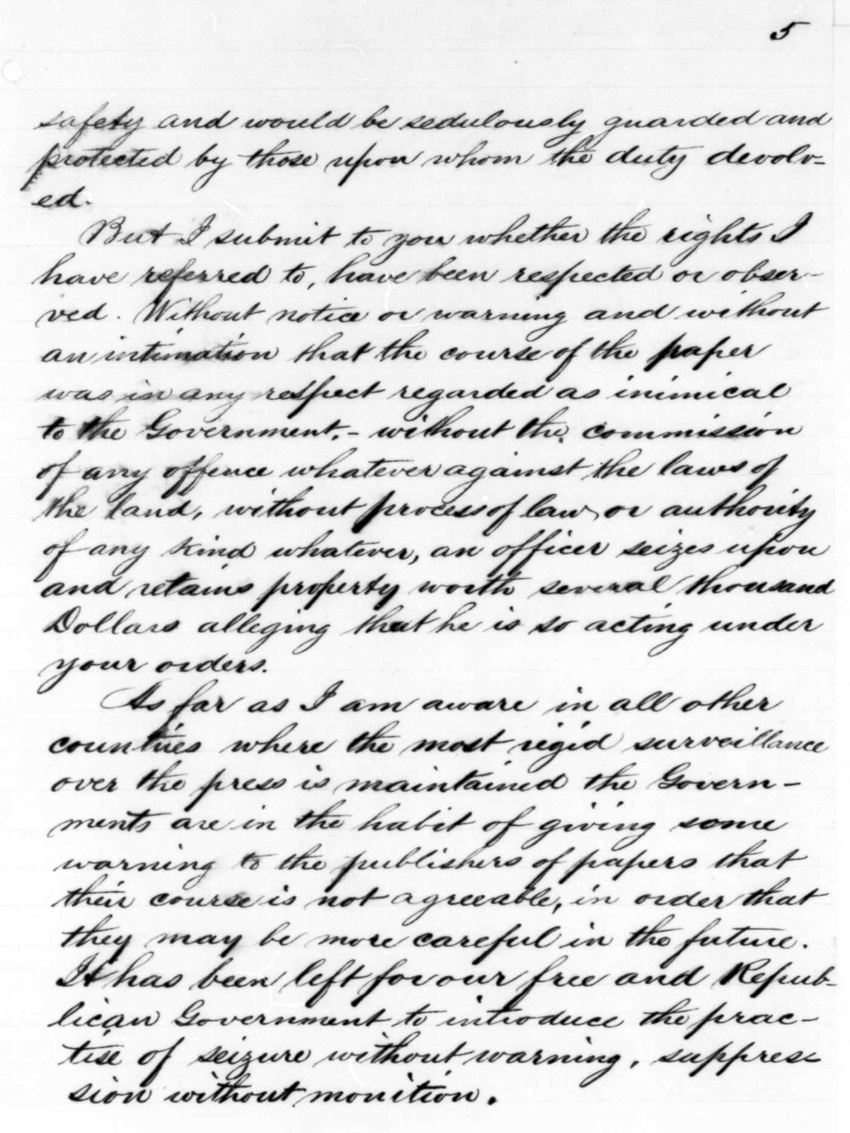 5
safety and would be sedulously guarded and
protected by those upon whom the duty devolv-
ed.
But I submit to you whether the rights I
have referred to, have been respected or obser-
ved. Without notice or warning and without
an intimation that the course of the paper
was in any respect regarded as inimical
to the Government,- without the commission
of any offence whatever against the laws of
the land, without process of law, or authority
of any kind whatever, an officer seizes upon
and retains property worth several thousand
Dollars alleging that he is so acting under
your orders.
As far as I am aware in all other
countries where the most rigid surveillance
over the press is maintained the Govern-
ments are in the habit of giving some
warning to the publishers of papers that
their course is not agreeable, in order that
they may be more careful in the future.
It has been left for our free and Repub-
lican Government to introduce the prac-
tise of seizure without warning, suppres-
sion without monition.